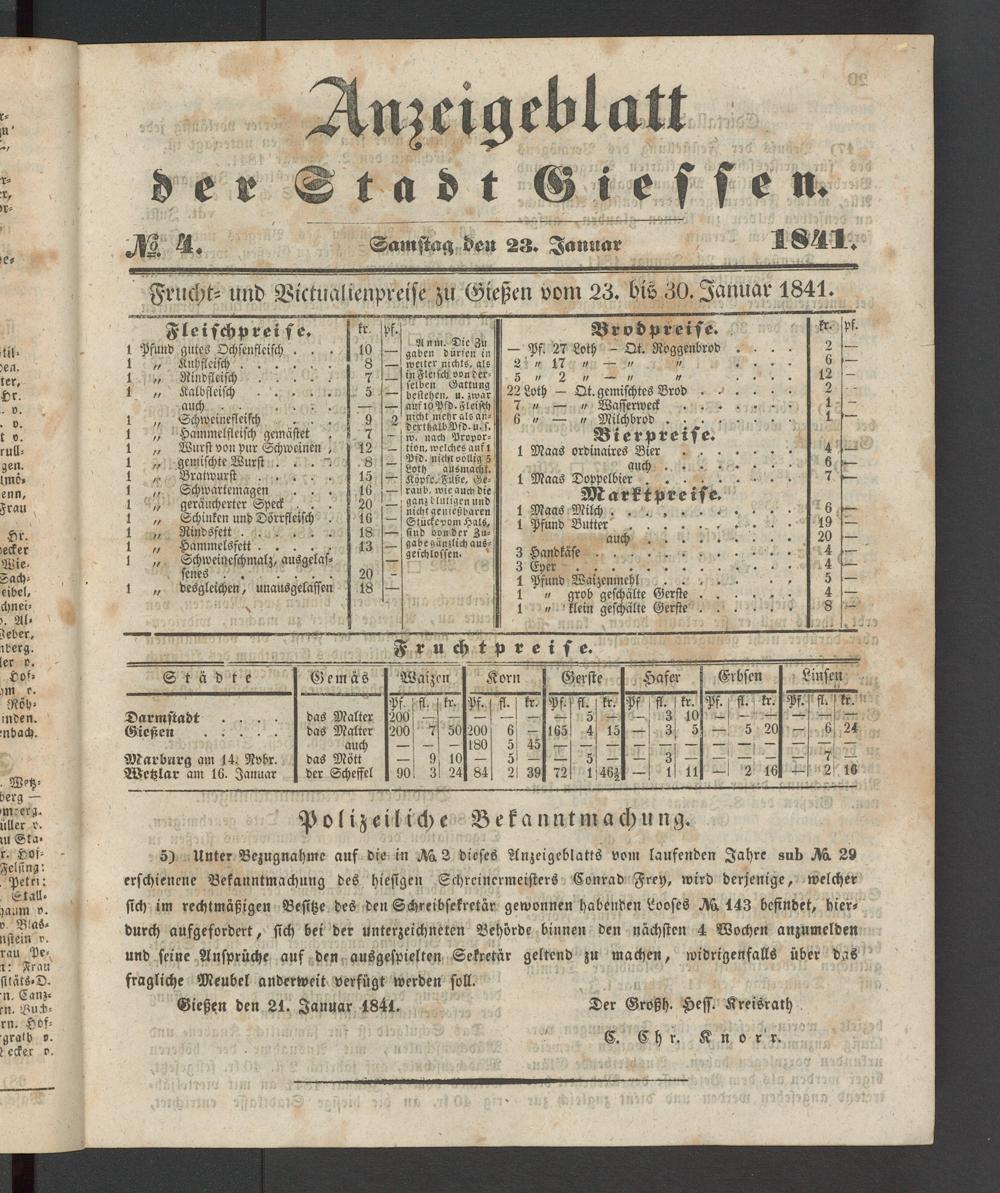 Anzeigeblatt
der Stadt Giessen.
No. 4. Samstag den 23. Januar 1841.
Frucht- und Victualienpreise zu Gießen vom 23. bis 30. Januar 1841.
Fleischpreise. kr. pf.
1 Pfund gutes Ochsenfleisch . . . 10 —
1 „ Kuhfleisch . . . 8 —
1 „ Rindfleisch . . . 7 —
1 „ Kalbfleisch . . . 5 —
auch . . . — —
1 „ Schweinefleisch . . . 9 2
1 „ Hammelfleisch gemästet . 7 —
1 „ Wurst von pur Schweinen , 12 —
1 „ gemischte Wurst . . . 8 —
1 „ Bratwurst . . . 15 —
1 „ Schwartemagen . . . 16 —
1 „ geräucherter Speck . . 20 —
1 „ Schinken und Dörrfleisch . 16 —
1 „ Rindsfett . . . 18 —
1 „ Hammelsfett . . . 13 —
1 „ Schweineschmalz, ausgelas-
senes . . . 20 -
1 „ desgleichen, unausgelassen 18 —
Anm. Die Zu
gaben dürfen in
weiter nichts, als
in Fleisch von der-
selben Gattung
bestehen, u. zwar
auf 10 Pfd. Fleisch
nicht mehr als an-
derthalb Pfd. u. s.
w. nach Propor-
tion, welches auf 1
Pfd. nicht völlig 5
Loth ausmacht.
Köpfe, Füße, Ge-
raub, wie auch die
ganz blutigen und
nicht genießbaren
Stücke vom Hals,
sind von der Zu-
gabe gänzlich aus-
geschlossen.
Brodpreise. kr. pf.
— Pf. 27 Loth — Qt. Roggenbrod . . . . 2 —
2 „ 17 „ — „ „ . . . . 6 —
5 „ 2 „ — „ „ . . . . 12 —
22 Loth — Qt. gemischtes Brod . . . . 2 —
7 „ — „ Wasserweck . . . . 1 —
6 „ — „ Milchbrod . . . . 1 —
Bierpreise.
1 Maas ordinaires Bier . . . . 4 —
auch . . . . 6 —
1 Maas Doppelbier . . . . 7 —
Marktpreise.
1 Maas Milch . . . . 6 —
1 Pfund Butter . . . . 19 —
auch . . . . 20 —
3 Handkäse . . . . 4 —
3 Eyer . . . . 4 —
1 Pfund Waizenmehl . . . . 5 —
1 „ grob geschälte Gerste . . . . 4 —
1 „ klein geschälte Gerste . . . . 8 —
Fruchtpreise.
Städte Gemäs Waizen Korn Gerste Hafer Erbsen Linsen
Pf. fl. kr. Pf. fl. kr. Pf. fl. kr. Pf fl. kr. Pf. fl. kr. Pf. fl. kr.
Darmstadt . . . . das Malter 200 — — — — — — 5 — — 3 10 — — — — — —
Gießen . . . . . das Malter 200 7 50 200 6 — 165 4 15 — 3 5 — 5 20 — 6 24
auch — — — 180 5 45 — — — — — — — — — — — —
Marburg am 14. Nvbr. das Mött — 9 10 — 5 — — 5 — — 3 — — — — — 7 —
Wetzlar am 16. Januar der Scheffel 90 3 24 84 2 39 72 1 46½ — 1 11 — 2 16 — 2 16
Polizeiliche Bekanntmachung.
5) Unter Bezugnahme auf die in No. 2 dieses Anzeigeblatts vom laufenden Jahre sub No. 29
erschienene Bekanntmachung des hiesigen Schreinermeisters Conrad Frey, wird derjenige, welcher
sich im rechtmäßigen Besitze des den Schreibsekretär gewonnen habenden Looses No. 143 befindet, hier-
durch aufgefordert, sich bei der unterzeichneten Behörde binnen den nächsten 4 Wochen anzumelden
und seine Ansprüche auf den ausgespielten Sekretär geltend zu machen, widrigenfalls über das
fragliche Meubel anderweit verfügt werden soll.
Gießen den 21. Januar 1841. Der Großh. Hess. Kreisrath
C. Chr. Knorr.